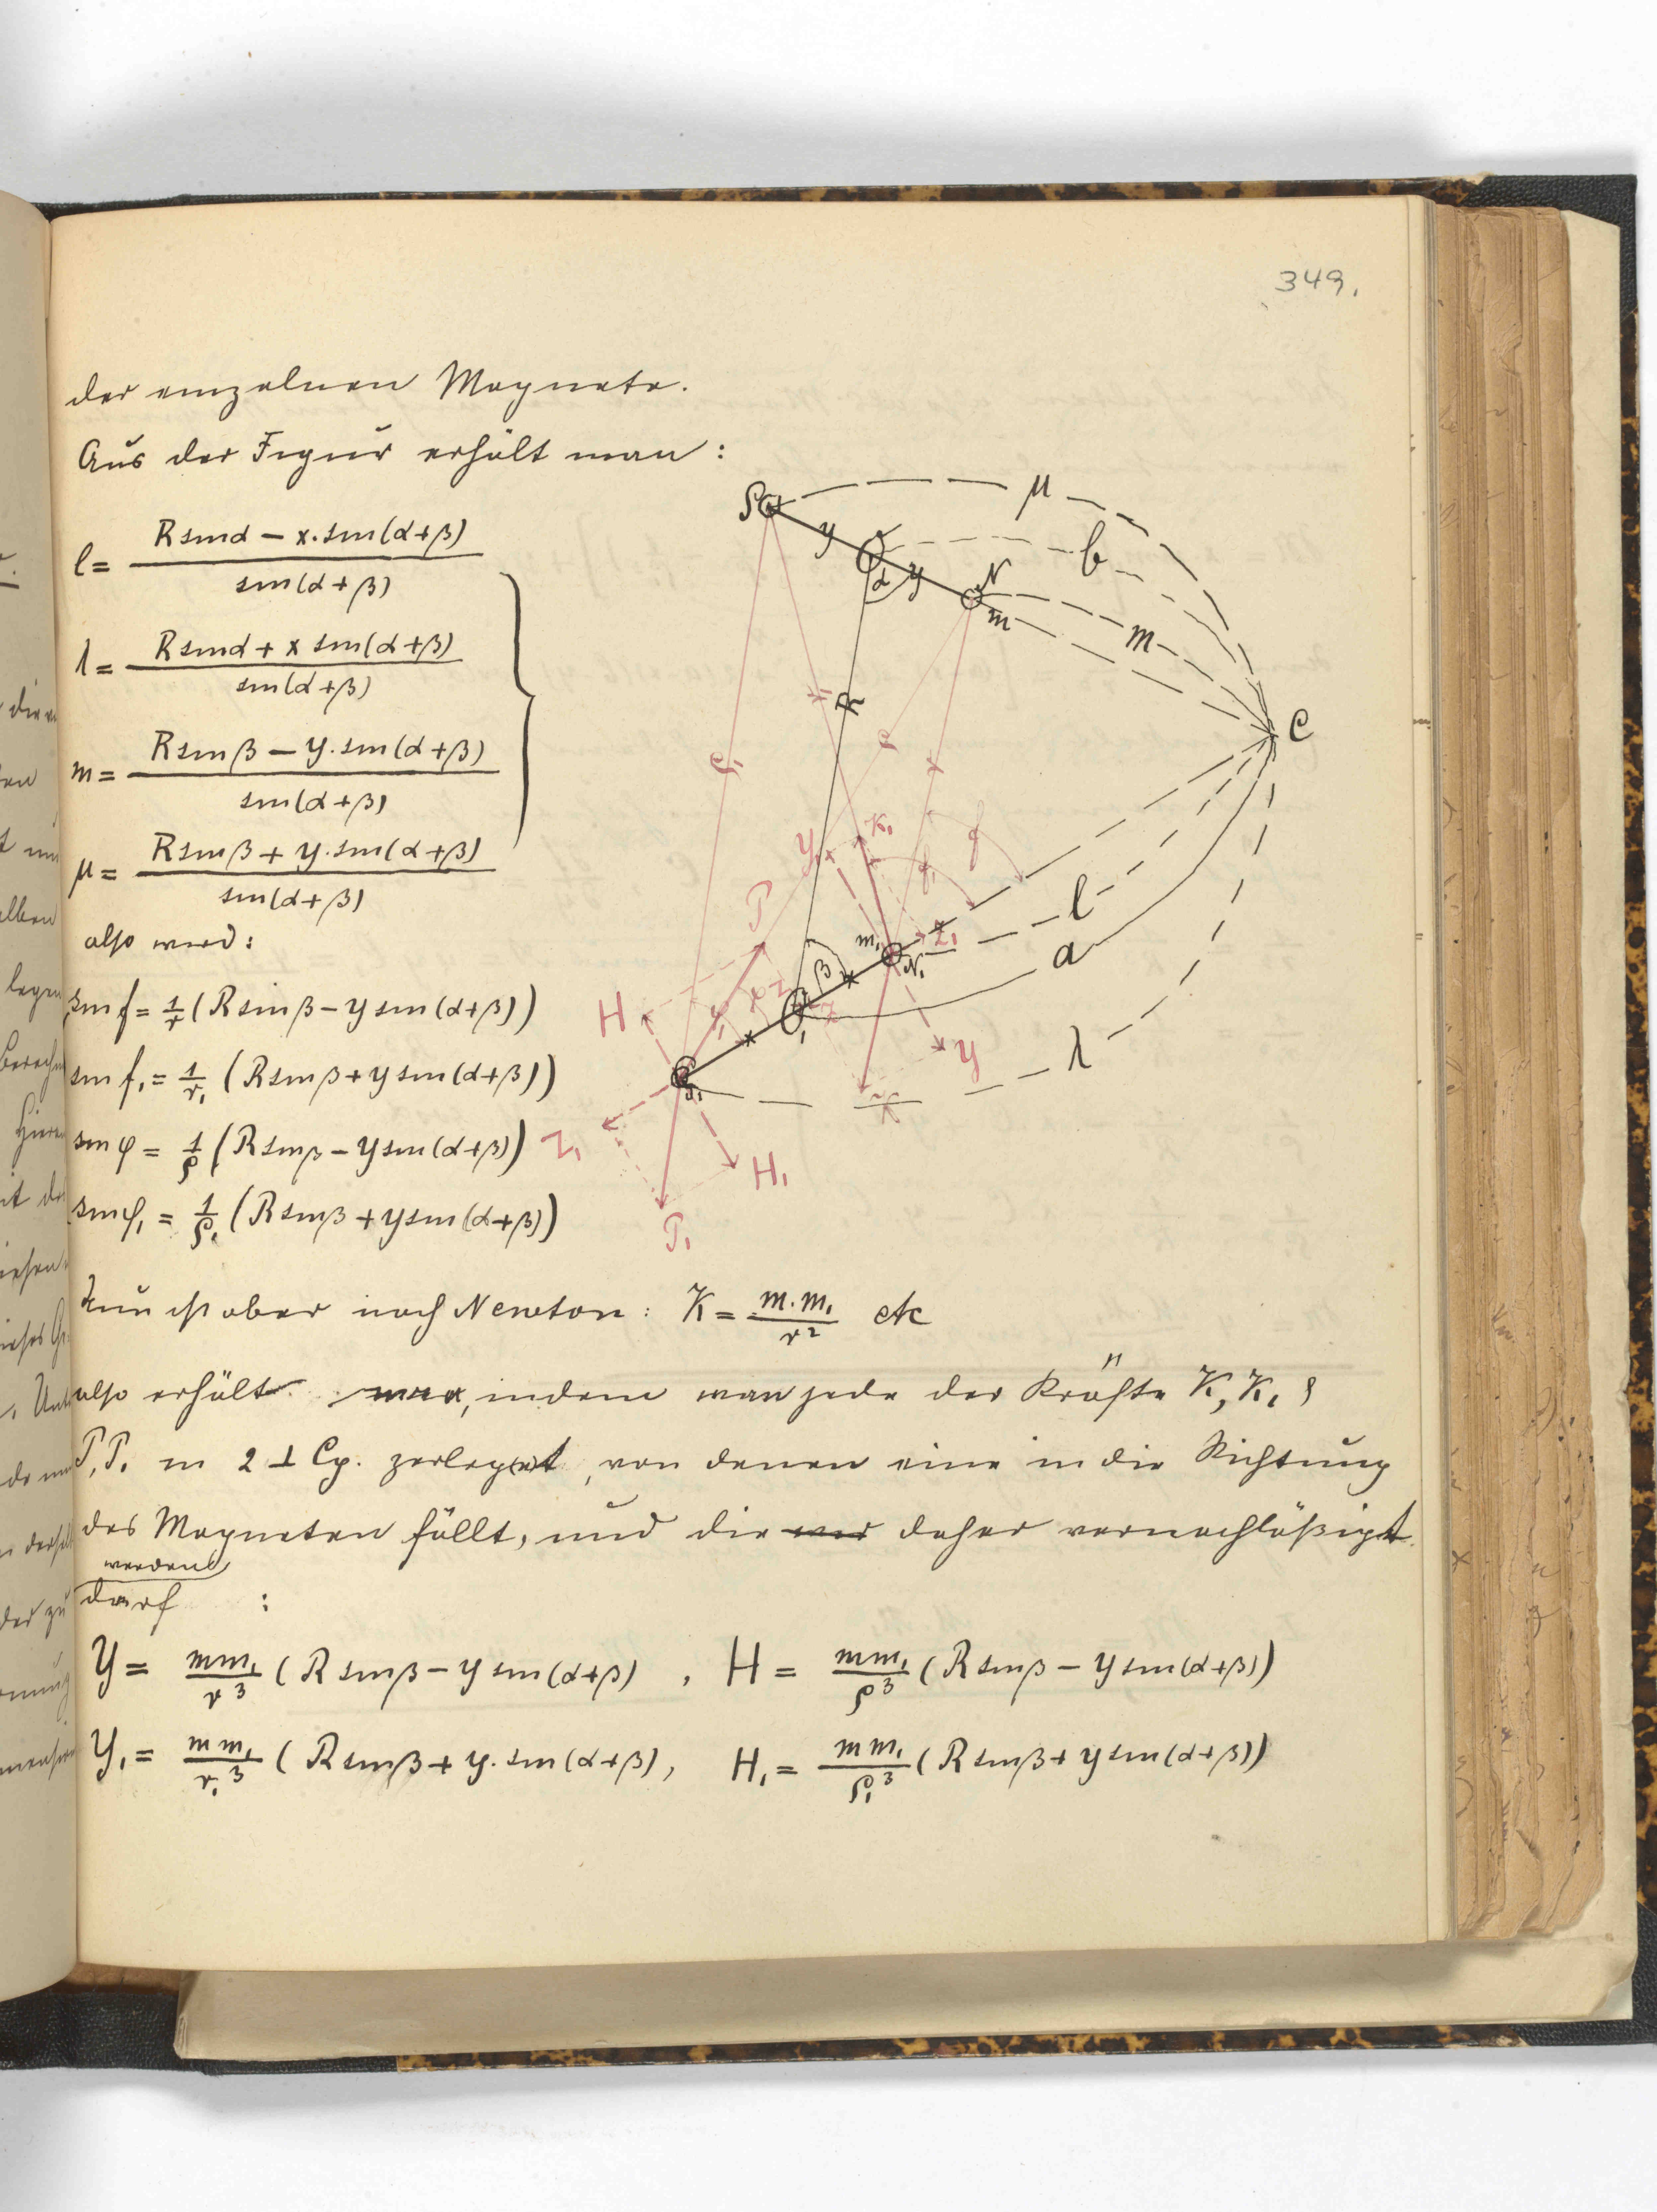 349.
der einzelnen Magnete.
Aus der Figur erhält man:
l = (R sin α − x. sin(α+β)) / sin(α+β)
λ = (R sin α + x sin(α+β)) / sin(α+β)
m = (R sin β − y. sin(α+β)) / sin(α+β)
μ = (R sin β + y. sin(α+β)) / sin(α+β)
also wird:
sin f = 1/r (R sin β − y sin(α+β))
sin f₁ = 1/r₁ (R sin β + y sin(α+β))
sin φ = 1/ρ (R sin β − y sin(α+β))
sin φ₁ = 1/ρ₁ (R sin β + y sin(α+β))
S μ
y O b
α y N
m m
R C
r₁ ρ₁ ρ r
K₁ Y₁ f₁ f
P l
m₁ N₁ Z₁ a
H β x
O₁ x Y λ
S₁ K
Z₁ H₁
P₁
Nun ist aber nach Newton: K = m.m₁/r² etc
also erhält man, indem man jede der Kräfte K, K₁,
P, P₁ in 2 ⊥ Cp. zerlegt, von denen eine in die Richtung
des Magneten fällt, und die daher vernachläßigt
werden
darf :
Y = mm₁/r³ (R sin β − y sin(α+β) , H = mm₁/ρ³ (R sin β − y sin(α+β))
Y₁ = mm₁/r₁³ (R sin β + y. sin(α+β), H₁ = mm₁/ρ₁³ (R sin β + y sin(α+β))